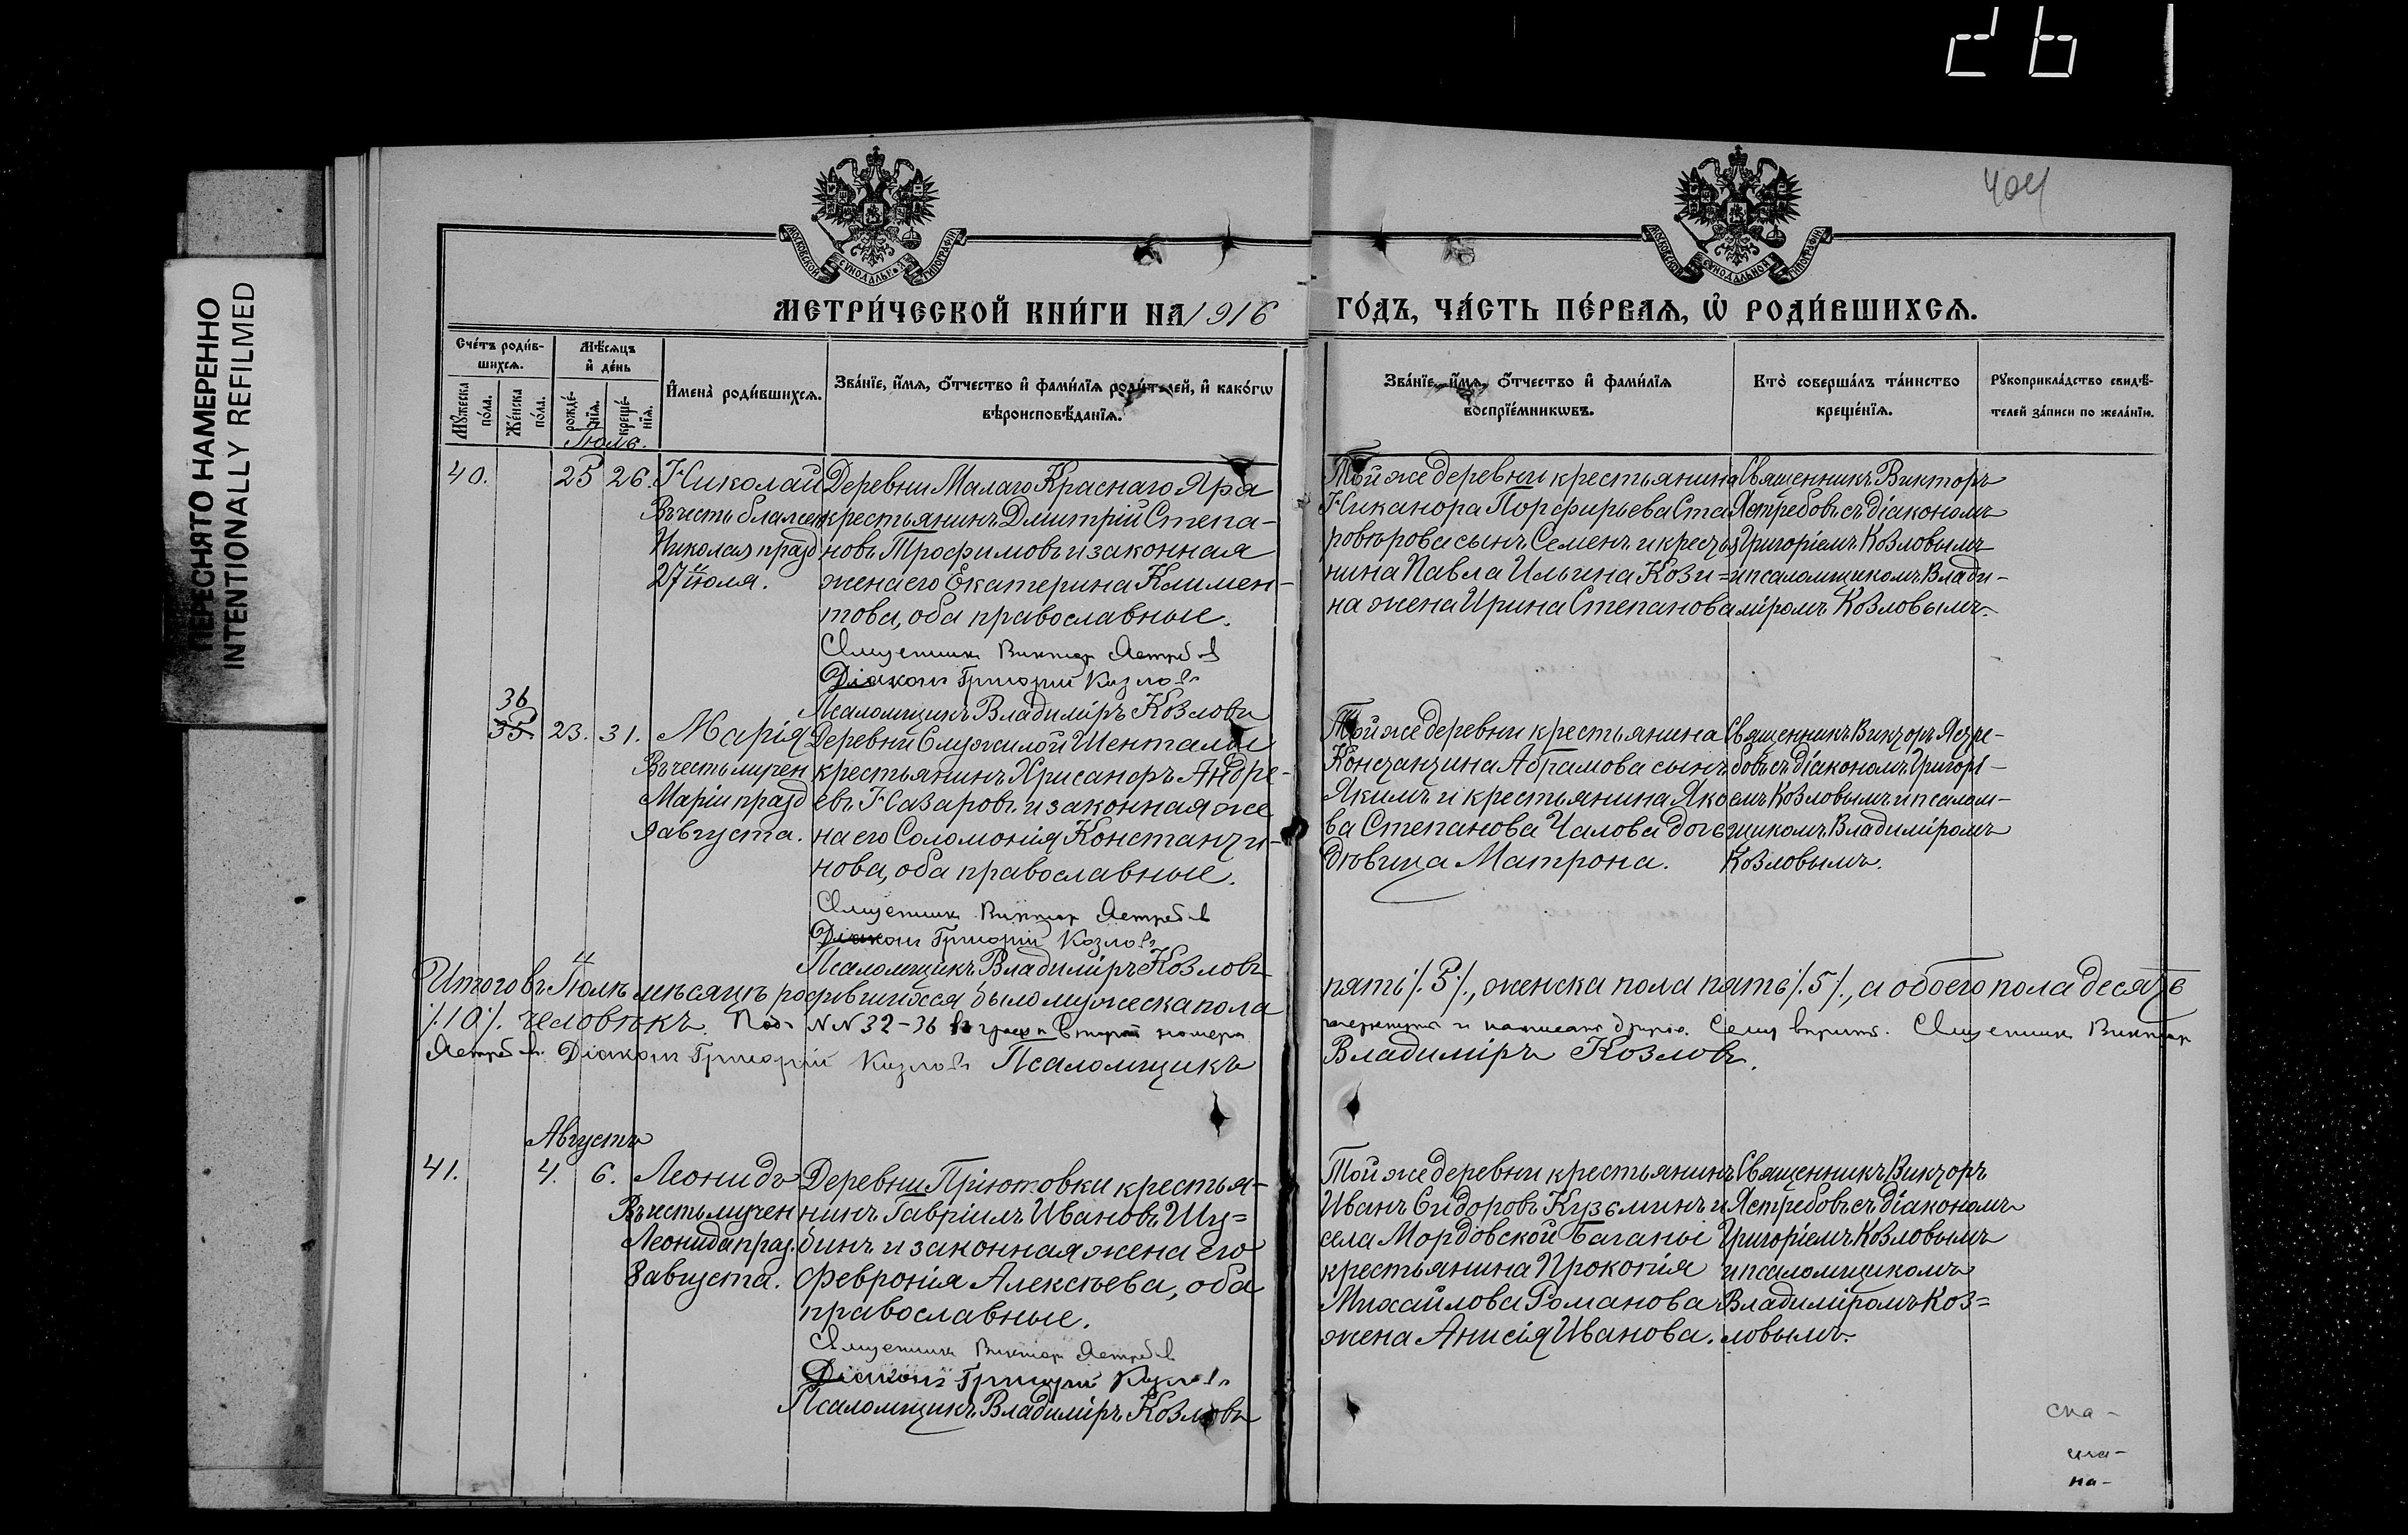 ПЕРЕСНЯТО НАМЕРЕННО
INTENTIONALLY REFILMED
404
МОСКОВСКОЙ СѴНОДАЛЬНОЙ ТИПОГРАФІИ
МОСКОВСКОЙ СѴНОДАЛЬНОЙ ТИПОГРАФІИ
МЕТРИ́ЧЕСКОЙ КНИ́ГИ НА 1916 ГО́ДЪ, ЧА́СТЬ ПЕ́РВАѦ, Ѡ РОДИ́ВШИХСѦ.
Сче́тъ роди́в-
шихсѧ.
Мꙋ́жеска по́ла.
Же́нска по́ла.
Мѣ́сѧцъ
и де́нь
рожде́-
нїѧ.
креще́-
нїѧ.
Имена̀ роди́вшихсѧ.
Зва́нїе, и́мѧ, о́тчество и фами́лїѧ роди́телей, и како́гѡ
вѣроисповѣ́данїѧ.
Зва́нїе, и́мѧ, о́тчество и фами́лїѧ
воспрїе́мникѡвъ.
Кто̀ соверша́лъ та́инство
креще́нїѧ.
Рꙋкоприкла́дство свидѣ́-
телей за́писи по жела́нїю.
Іюль.
40. 25 26. Николай
Въ честь блажен
Николая празд
27 іюля.
Деревни Малаго Краснаго Яра
крестьянинъ Дмитрій Степа-
новъ Трофимовъ и законная
жена его Екатерина Климен-
това, оба православные.
Священникъ Викторъ Ястребовъ
Діаконъ Григорій Козловъ
Псаломщикъ Владиміръ Козловъ
Той же деревни крестьянина
Никанора Порфирьева Ста
ровѣрова сынъ Семенъ и кресть
нина Павла Ильина Кози=
на жена Ирина Степанова
Священникъ Викторъ
Ястребовъ съ діакономъ
Григоріемъ Козловымъ
и псаломщикомъ Влади-
міромъ Козловымъ.
36
35. 23. 31. Марія
Въ честь мучен
Маріи празд
9 августа.
Деревни Служилой Шенталы
крестьянинъ Хрисанфъ Андре-
евъ Назаровъ и законная же
на его Соломонія Константи-
нова, оба православные.
Священникъ Викторъ Ястребовъ
Діаконъ Григорій Козловъ
Псаломщикъ Владиміръ Козловъ
Той же деревни крестьянина
Константина Абрамова сынъ
Якимъ и крестьянина Яко
ва Степанова Чалова дочь
дѣвица Матрона.
Священникъ Викторъ Ястре-
бовъ съ діакономъ Григорі-
емъ Козловымъ и псалом-
щикомъ Владиміромъ
Козловымъ.
Итого въ Іюлѣ мѣсяцѣ родившихся было мужеска пола пять /.5/., женска пола пять /.5/., а обоего пола десять
/.10/. человѣкъ. Подъ №№ 32-36 въ графѣ второй номера зачеркнуты и написаны другіе. Сему вѣрить. Священникъ Викторъ
Ястребовъ. Діаконъ Григорій Козловъ Псаломщикъ Владиміръ Козловъ.
Августъ
41. 4. 6. Леонидъ
Въ честь мучен
Леонида праз.
8 августа.
Деревни Пріютовки крестья-
нинъ Гавріилъ Ивановъ Шу=
бинъ и законная жена его
Февронія Алексѣева, оба
православные.
Священникъ Викторъ Ястребовъ
Діаконъ Григорій Козловъ
Псаломщикъ Владиміръ Козловъ
Той же деревни крестьянинъ
Иванъ Сидоровъ Кузьминъ и
села Мордовской Баганы
крестьянина Прокопія
Михайлова Романова
жена Анисія Иванова.
Священникъ Викторъ
Ястребовъ съ діакономъ
Григоріемъ Козловымъ
и псаломщикомъ
Владиміромъ Коз=
ловымъ.
на-